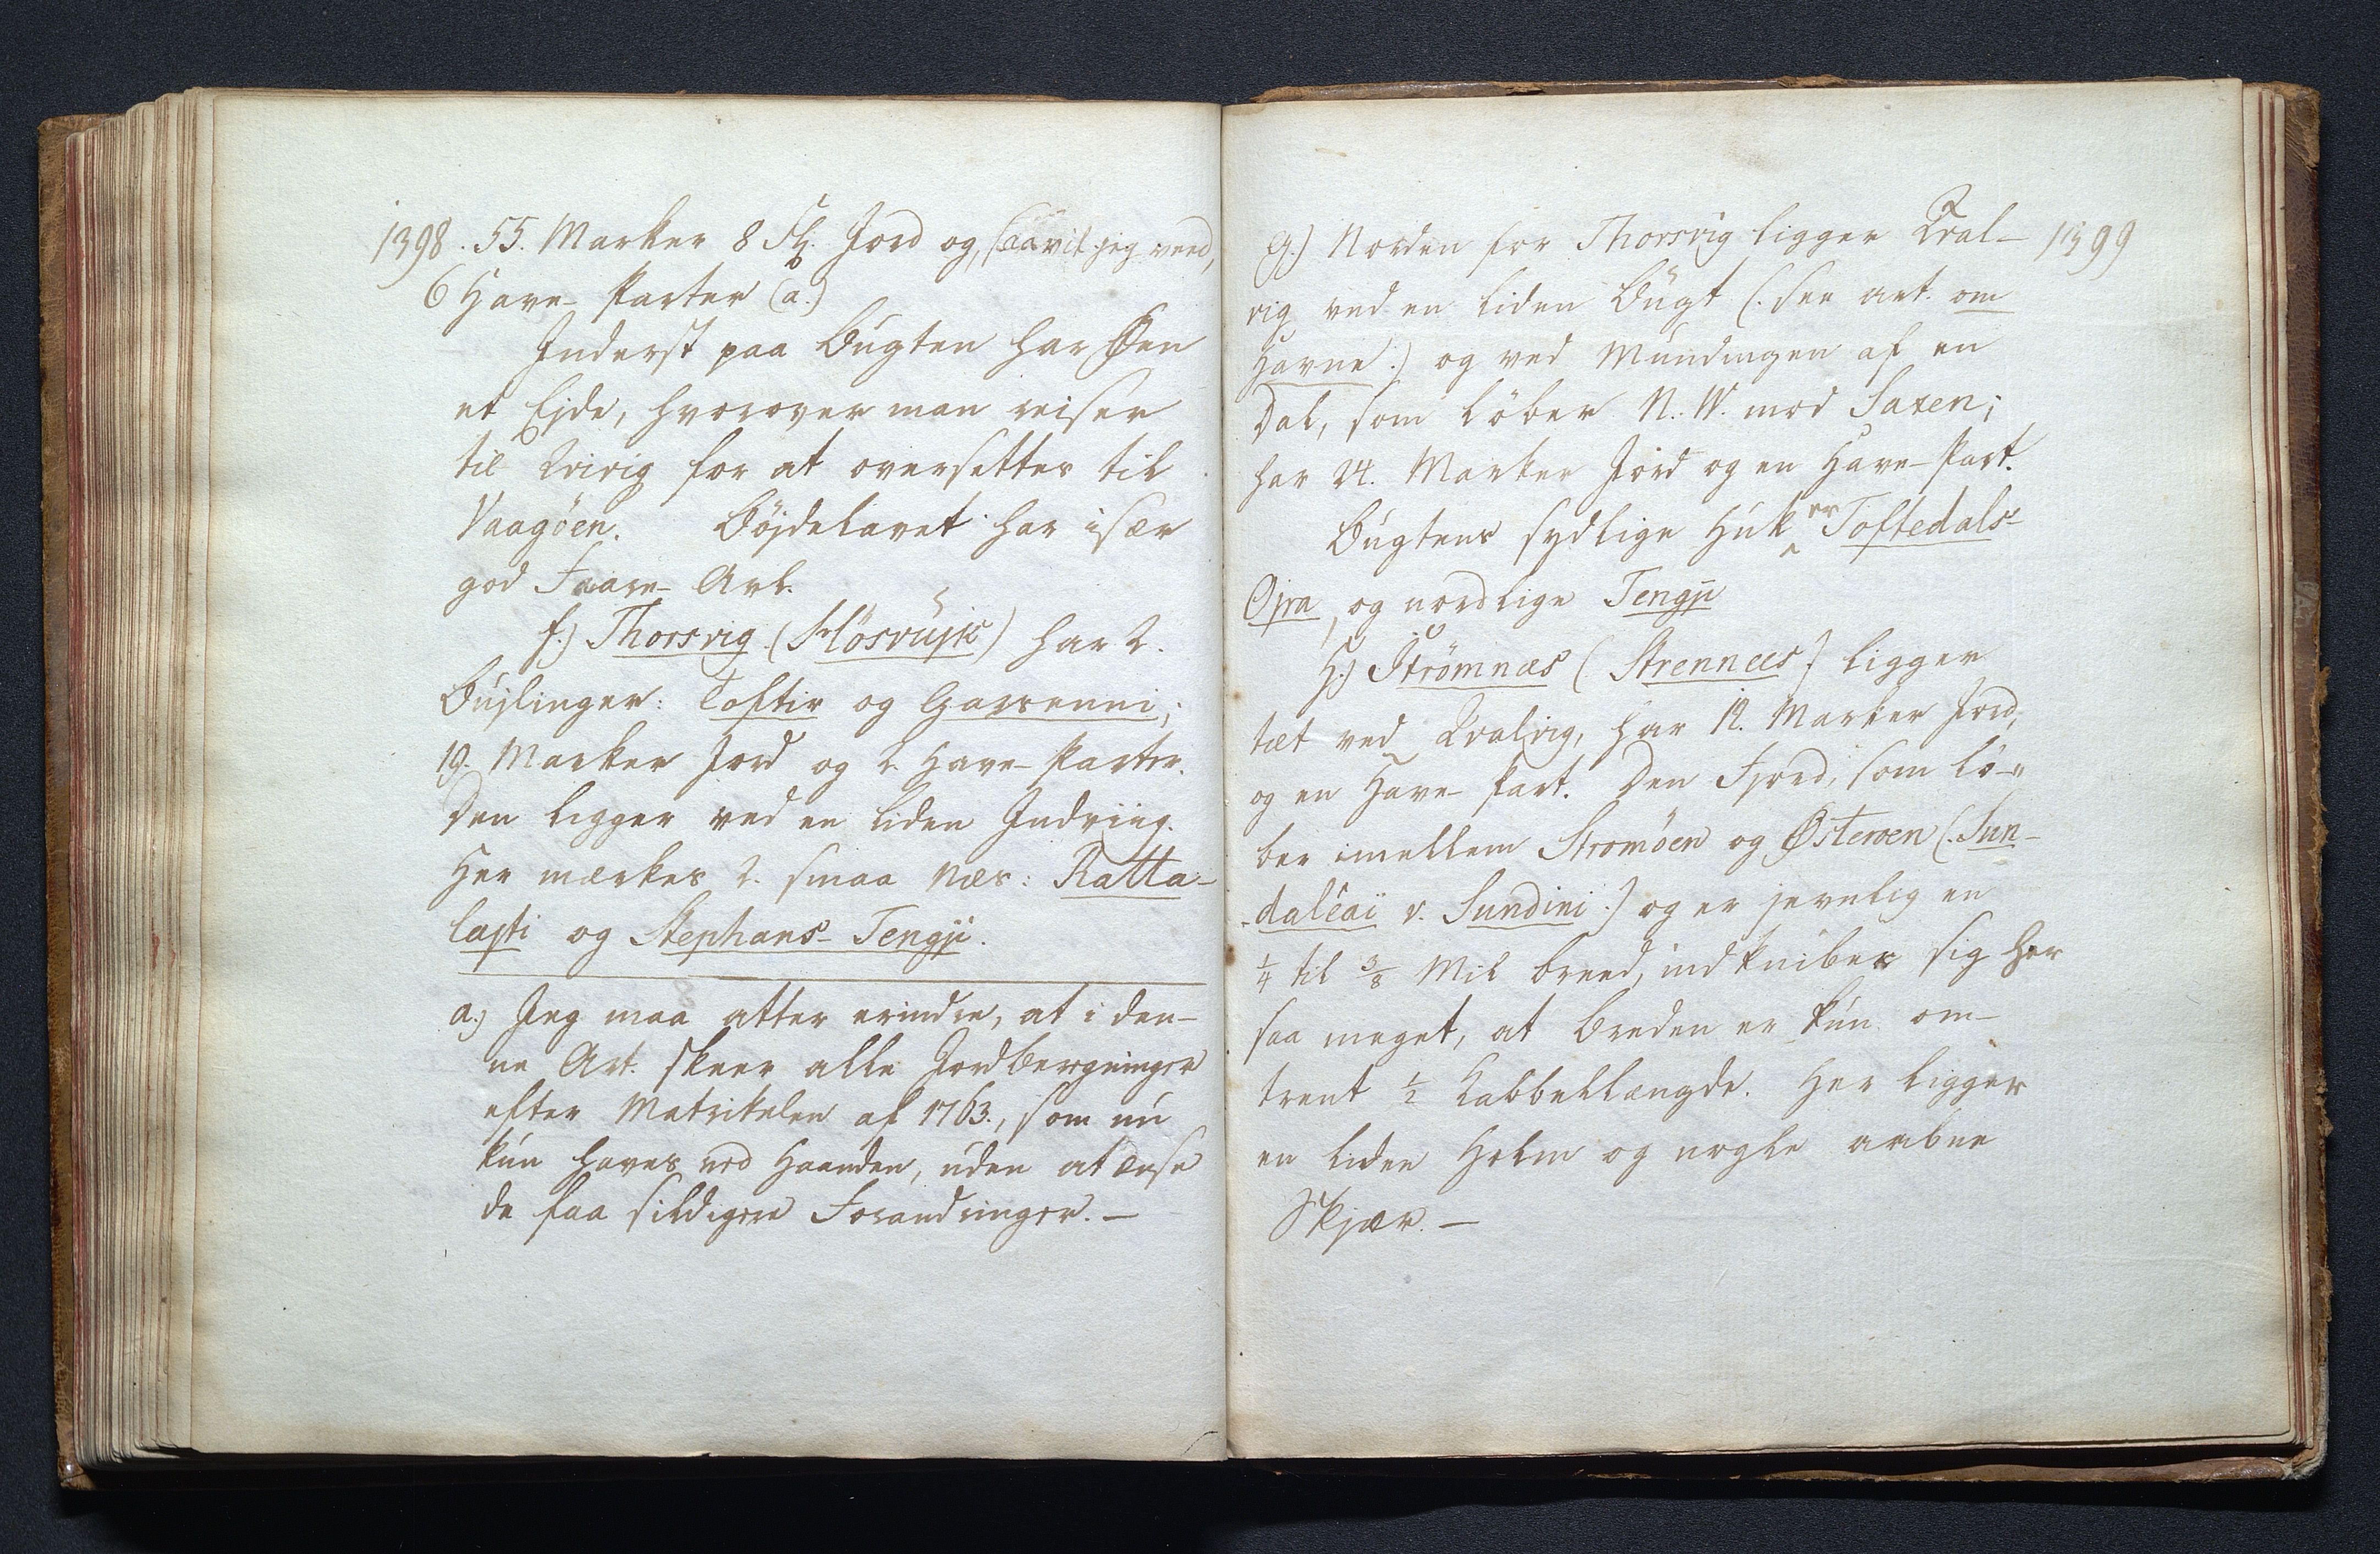 1398. 55. Marker 8 Sk. Jord og, saavit jeg veed,
6 Have-Parter (a.)
Inderst paa Bugten har Øen
et Ejde, hvorover man reiser
til Qvivig for at oversettes til
Vaagöen. Böjdelavet har især
god Faare-Avl.
f.) Thorsvig (Hösvujk) har 2.
Bujlinger: Toftir og Garsenni;
19. Marker Jord og 2. Have-Parter.
Den ligger ved en liden Indviig.
Her mærkes 2. smaa Næs: Ratta-
lajti og Stephans-Tengji.
a.) Jeg maa atter erindre, at i den-
ne Art. skeer alle Jordberegninger
efter Matrikelen af 1763., som nu
kun haves ved Haanden, uden at ændse
de faa sildigere Forandringer. —
g.) Norden for Thorsvig ligger Qval- 1399
vig ved en liden Bugt (: see art. om
Havne :) og ved Mundingen af en
Dal, som löber N. W. mod Saxen;
har 24. Marker Jord og en Have-Part.
Bugtens sydlige Huk er Toftedals-
Ojra, og nordlige Tengji
h.) Strömnæs (Strennees) ligger
tæt ved Qvalvig, har 12. Marker Jord,
og en Have-Part. Den Fjord, som lö-
ber imellem Stromöen og Österoen (: Sun-
-daléai v. Sundini :) og er jevnlig en
1/4 til 3/8 Mil breed, indkniber sig her
saa meget, at Breden er kun om-
trent 1/2 Kabbellængde. Her ligger
en liden Holm og nogle andre
Skjær. —